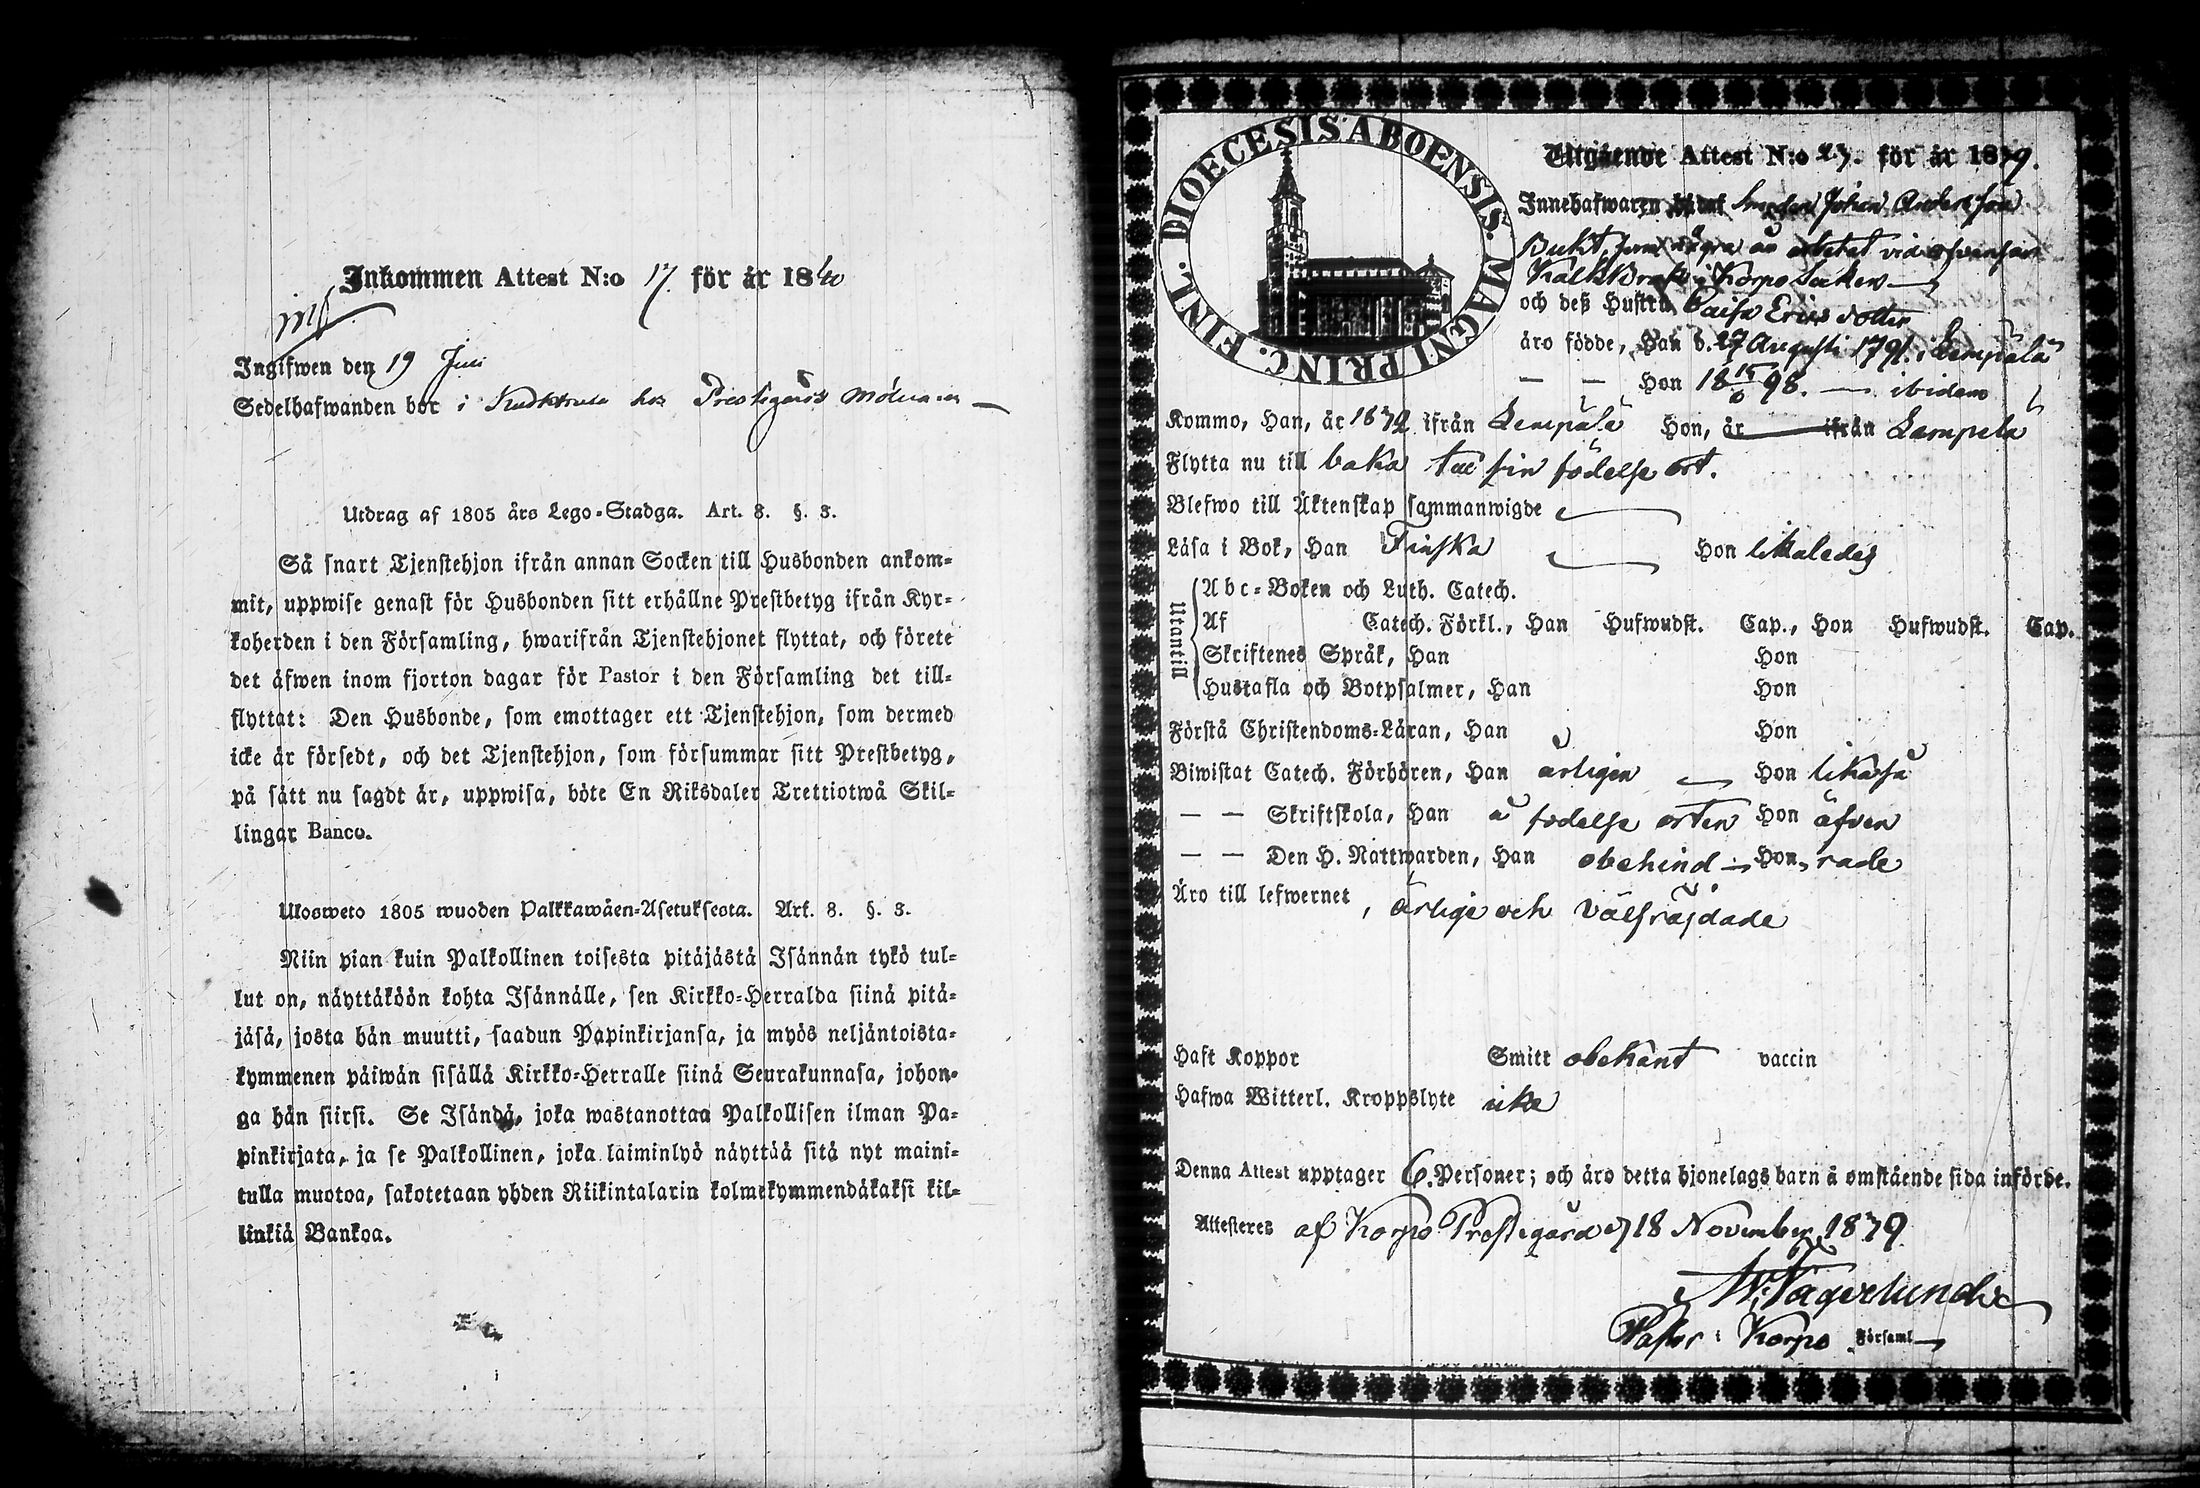 Inkommen Attest N:o 17 för år 1840
Ingifwen den 19 Juli
Sedelhafwanden bor i hos Prestegårds
Utdrag af 1805 års Lego-Stadga. Art. 8. §. 3.
Så snart Tjenstehjon ifrån annan Socken till Husbonden ankom-
mit, uppwise genast för Husbonden sitt erhållne Prestbetyg ifrån Kyr-
koherden i den Församling, hwarifrån Tjenstehjonet flyttat, och förete
det äfwen inom fjorton dagar för Pastor i den Församling det till-
flyttat: Den Husbonde, som emottager ett Tjenstehjon, som dermed
icke är försedt, och det Tjenstehjon, som försummar sitt Prestbetyg,
på sätt nu sagdt är, uppwisa, böte En Riksdaler Trettiotwå Skil-
lingar Banco.
Ulosweto 1805 wuoden Palkkawäen-Asetuksesta. Art. 8. §. 3.
Niin pian kuin Palkollinen toisesta pitäjästä Isännän tykö tul-
lut on, näyttäköön kohta Isännälle, sen Kirkko-Herralda siinä pitä-
jäsä, josta hän muutti, saadun Papinkirjansa, ja myös neljäntoista-
kymmenen päiwän sisällä Kirkko-Herralle siinä Seurakunnasa, johon-
ga hän siirsi. Se Isändä, joka wastanottaa Palkollisen ilman Pa-
pinkirjata, ja se Palkollinen, joka laiminlyö näyttää sitä nyt maini-
tulla muotoa, sakotetaan yhden Riikintalarin kolmekymmendäkaksi kil-
linkiä Bankoa.
DIOECESIS ABOENSIS. MAGNI PRINC. FINL.
Utgående Attest N:o 27. för år 1839.
Innehafwaren Smeden Johan Andersson
Bukt, som några år arbetat vid
Kalkbrott i Korpo Socken
och deß Hustru Caisa Ericsdotter
äro födde, Han d. 27 Augusti 1791. i Lempälä
— — Hon 18 15/6 98. — ibidem
Kommo, Han, år 1832 ifrån Lempälä Hon, år ifrån Lempelä
Flytta nu till baka till sin födelse ort.
Blefwo till Äktenskap sammanwigde
Läsa i Bok, Han Finska Hon likaledes
Utantill
Abc-Boken och Luth. Catech.
Af Catech. Förkl., Han Hufwudst. Cap., Hon Hufwudst. Cap.
Skriftenes Språk, Han Hon
Hustafla och Botpsalmer, Han Hon
Förstå Christendoms-Läran, Han Hon
Biwistat Catech. Förhören, Han årligen Hon likaså
— — Skriftskola, Han å födelse orten Hon äfven
— — Den H. Nattwarden, Han obehind- Hon, rade
Äro till lefwernet, ärlige och välfräjdade
Haft Koppor Smitt obekant vaccin
Hafwa Witterl. Kroppslyte icke
Denna Attest upptager 6. Personer; och äro detta hjonelags barn å omstående sida införde.
Attesteres af Korpo Prestegård d 18 November 1839
Pastor i Korpo Församl